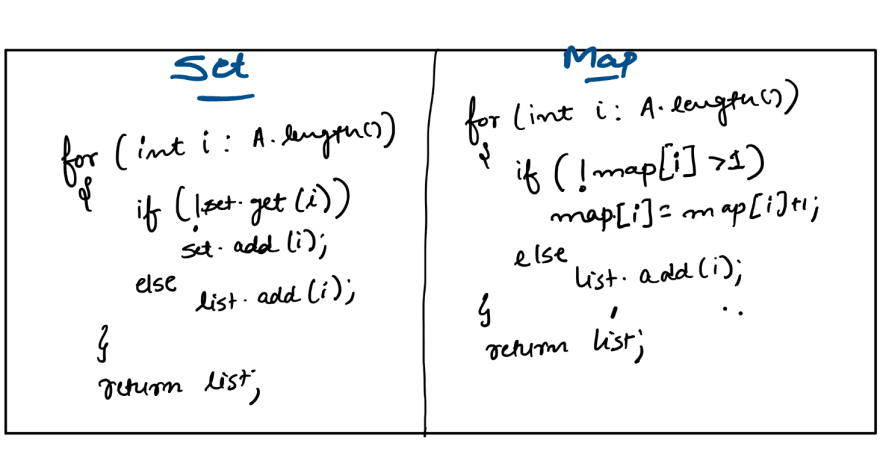 Set
for (int i : A.length())
{
if (!set.get(i))
set.add(i);
else
list.add(i);
}
return list;
Map
for (int i : A.length())
{
if (!map[i] >1)
map[i] = map[i]+1;
else
list.add(i);
}
return list;